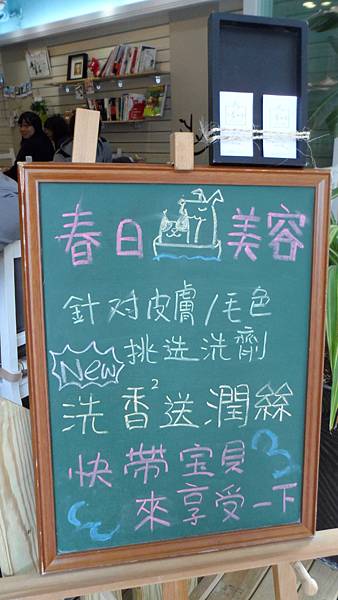 春日 美容
針对皮膚/毛色
New 挑选洗劑
洗香²送潤絲
快帶宝貝
來享受一下